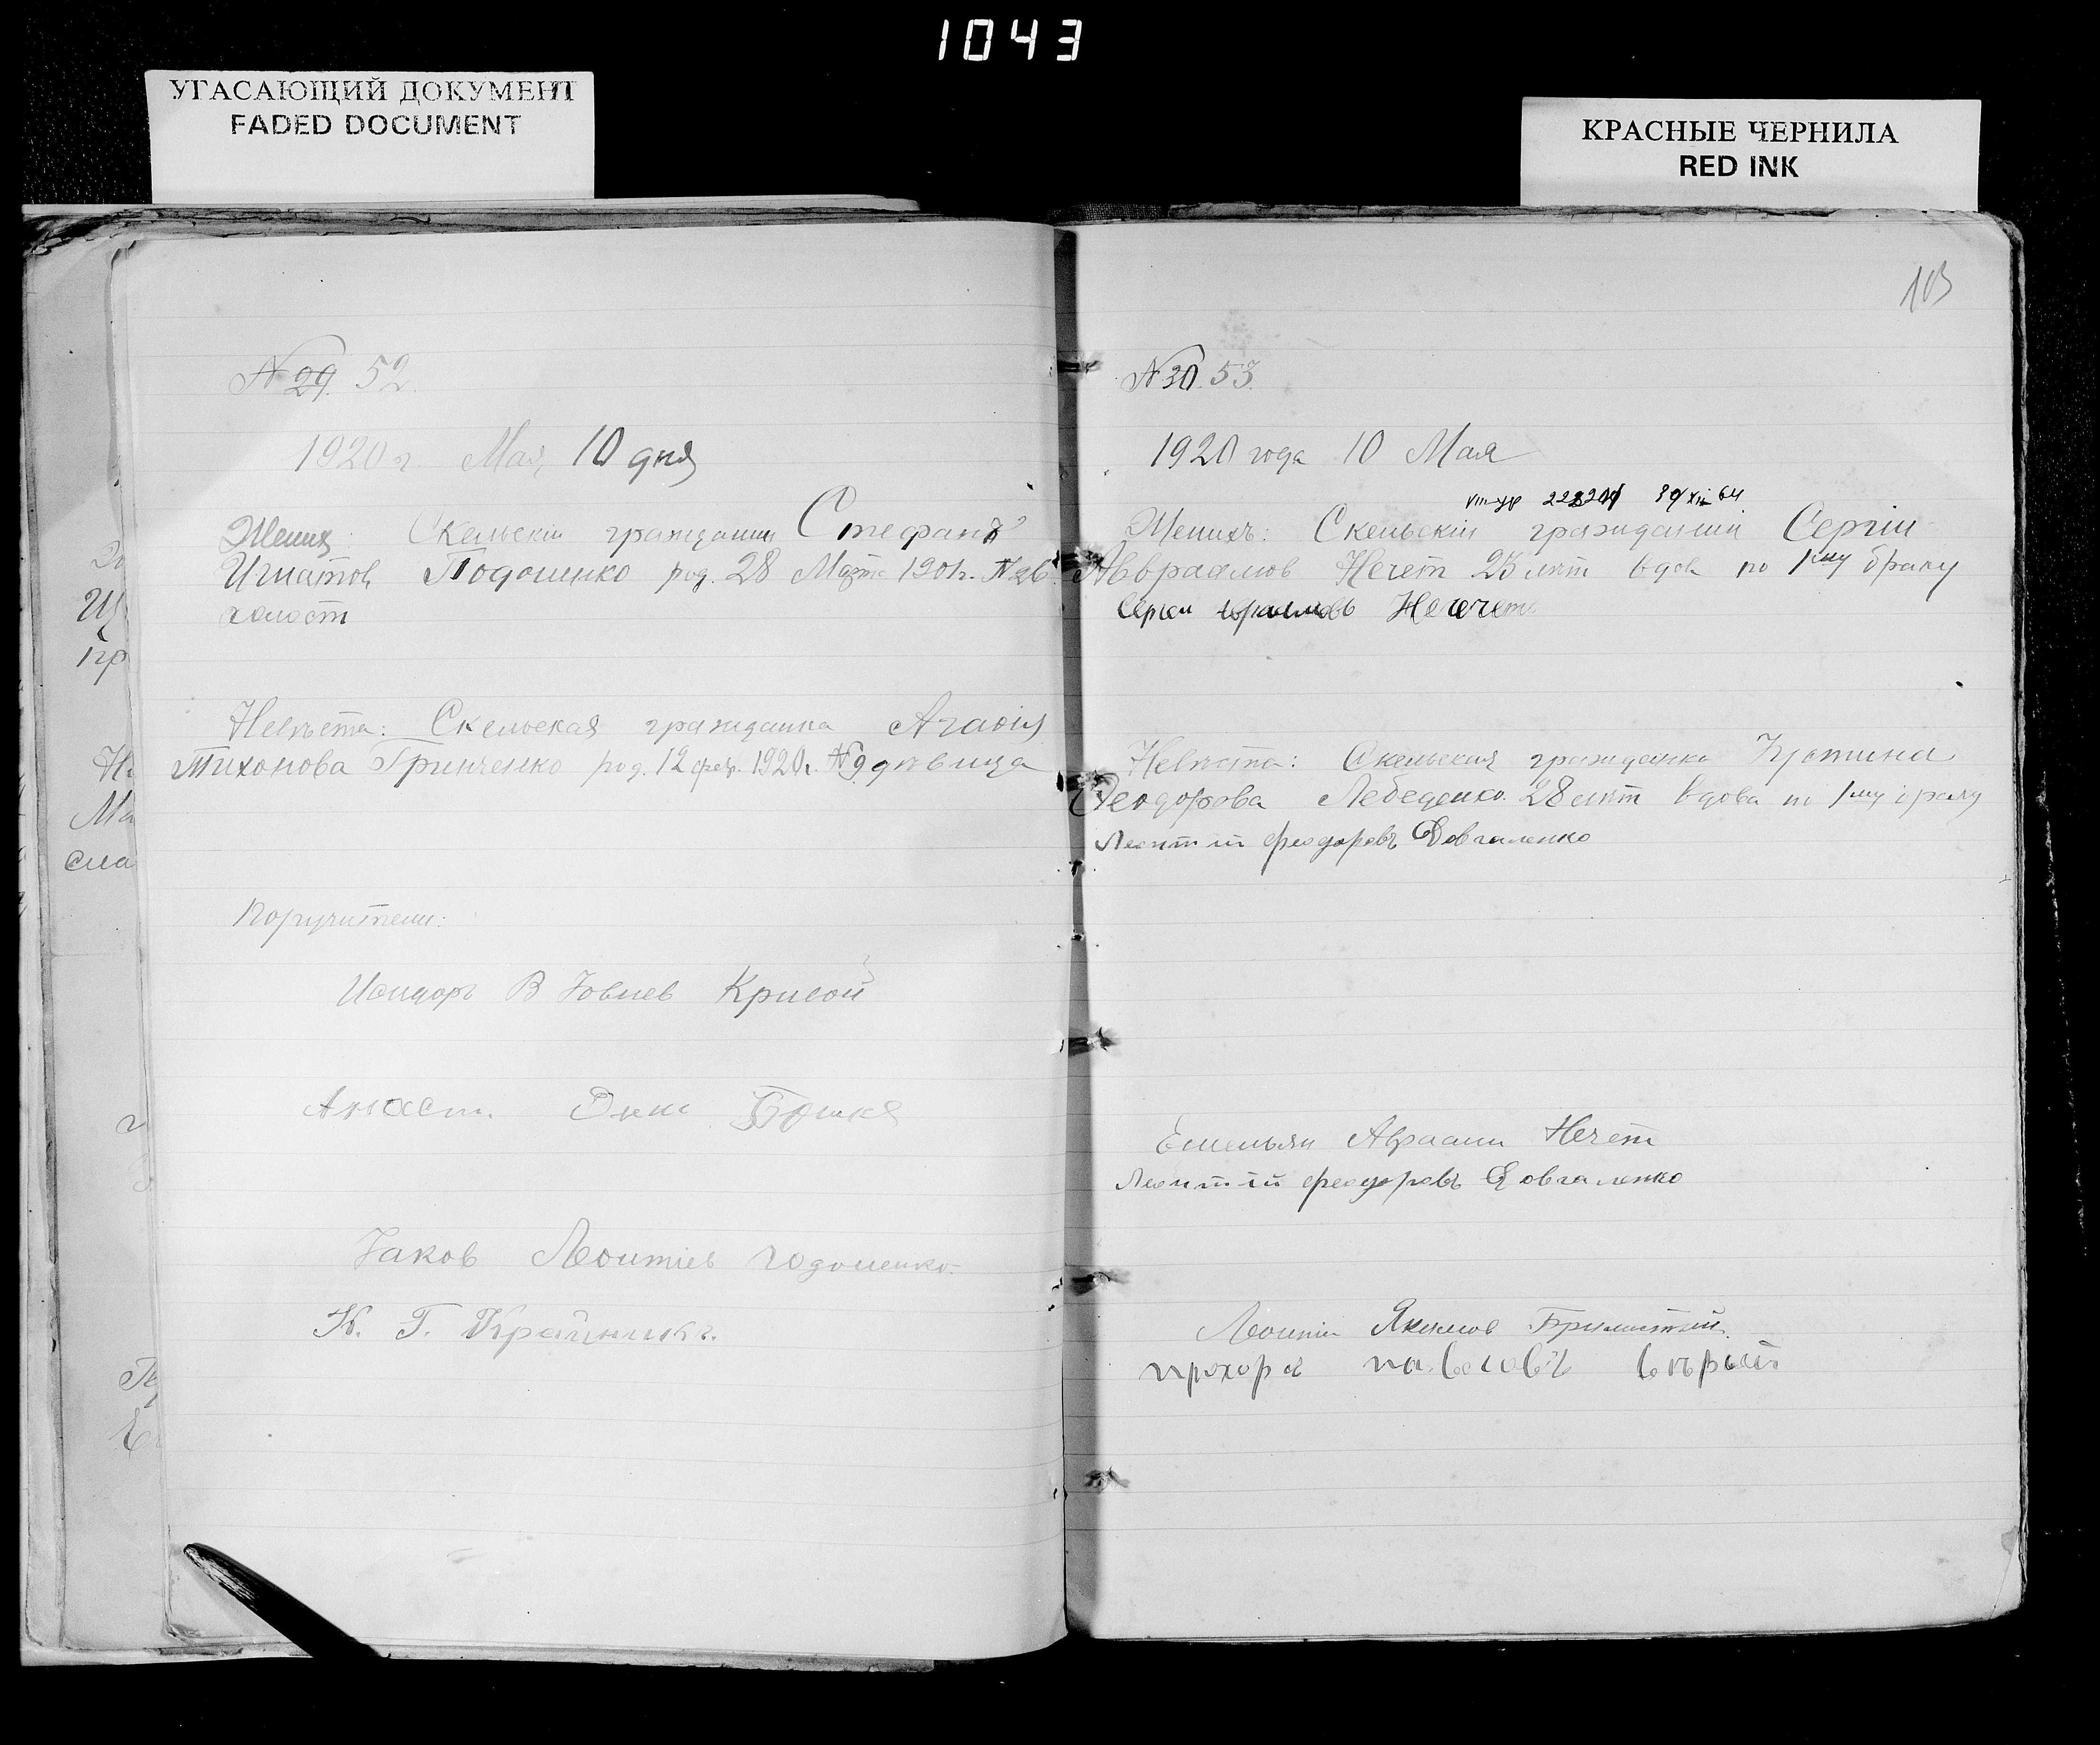 1043
УГАСАЮЩИЙ ДОКУМЕНТ
FADED DOCUMENT
КРАСНЫЕ ЧЕРНИЛА
RED INK
№ 29. 52.
1920 г. Мая, 10 дня
Жених Скельскій гражданин Стефанъ
Игнатов Подошенко род. 28 Марта 1901г. № 26
холост
Невѣста: Скельская гражданка Агафия
Тихонова Гринченко род. 12 фев. 1920г. № 9 дѣвица
Поручители:
Исидоръ Іовлев Кривой
Яков Леонтіев
К. Г. Крайникъ.
103
№ 30. 53.
1920 года 10 Мая
Женихъ: Скельскій гражданин Сергій
Авраамов Нечет 25 лѣт вдов по 1му браку
Сергеи Нечет
Невѣста: Скельская гражданка Іустина
Феодорова Лебеденко. 28 лѣт вдова по 1му браку
Леонтій феодоровъ Довгаленко
Емельян Авраам Нечет
Леонтій феодоровъ Довгаленко
Леонтій Якимов
прохор